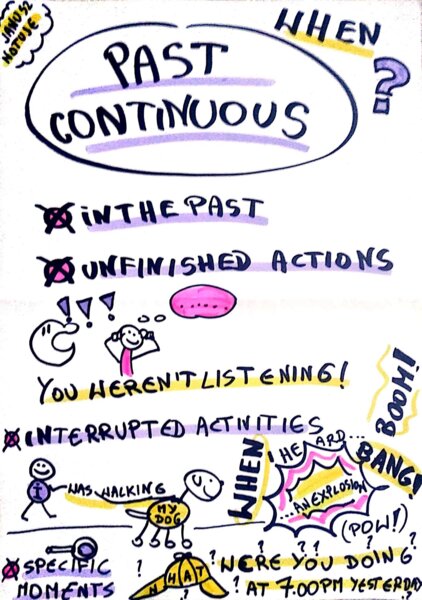 JANUSZ
NOTUJE
WHEN
?
PAST
CONTINUOUS
IN THE PAST
UNFINISHED ACTIONS
! ! !
......
YOU WEREN'T LISTENING!
INTERRUPTED ACTIVITIES
I WAS WALKING
MY
DOG
WHEN I
HEARD...
...AN EXPLOSION
(POW!)
BANG!
BOOM!
SPECIFIC
MOMENTS
? WHAT ?
WERE YOU DOING
AT 7.00PM YESTERDAY